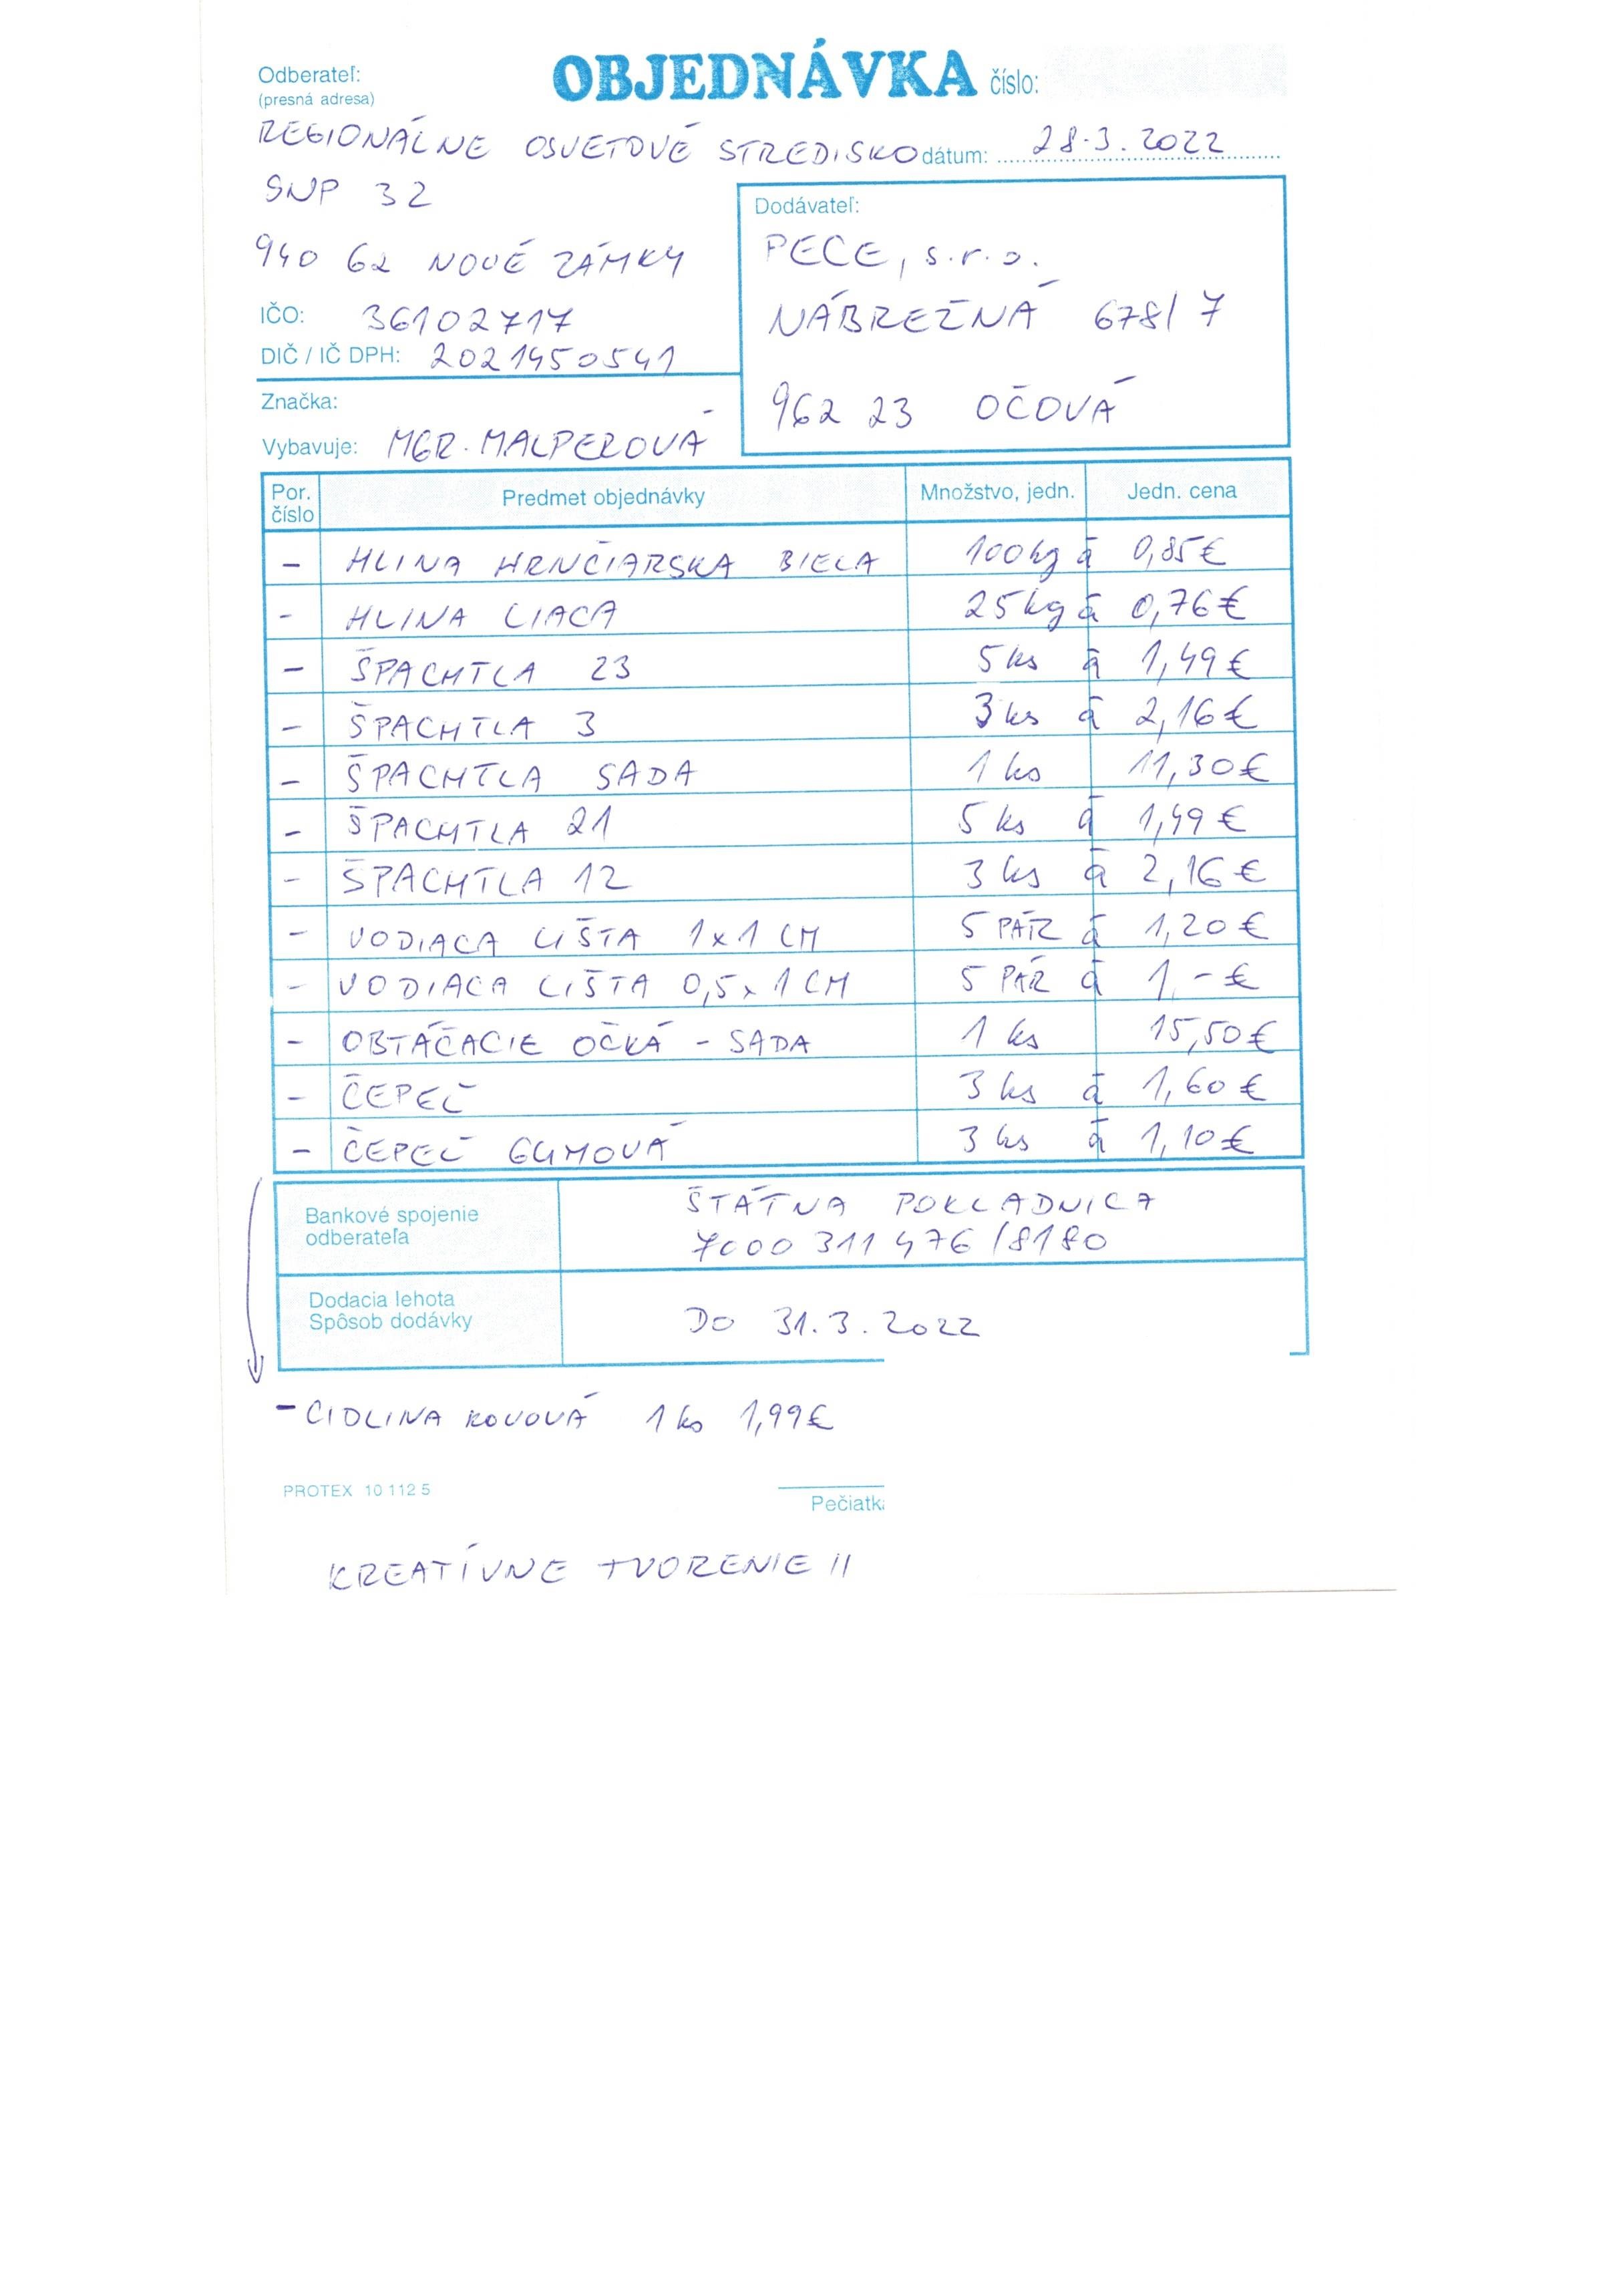 Odberateľ:
(presná adresa)
OBJEDNÁVKA číslo:
REGIONÁLNE OSVETOVÉ STREDISKO dátum: 28.3.2022
SNP 32
940 62 NOVÉ ZÁMKY
IČO: 36102717
DIČ / IČ DPH: 2021450541
Značka:
Vybavuje: MGR. MALPEROVÁ
Dodávateľ:
PECE, s.r.o.
NÁBREŽNÁ 678/7
962 23 OČOVÁ
Por. číslo Predmet objednávky Množstvo, jedn. Jedn. cena
- HLINA HRNČIARSKA BIELA 100kg á 0,85€
- HLINA LIACA 25kg á 0,76€
- ŠPACHTLA 23 5 ks á 1,49€
- ŠPACHTLA 3 3 ks á 2,16€
- ŠPACHTLA SADA 1 ks 11,30€
- ŠPACHTLA 21 5 ks á 1,49€
- ŠPACHTLA 12 3 ks á 2,16€
- VODIACA LIŠTA 1x1 CM 5 PÁR á 1,20€
- VODIACA LIŠTA 0,5x1 CM 5 PÁR á 1,-€
- OBTÁČACIE OČKÁ - SADA 1 ks 15,50€
- ČEPEĽ 3 ks á 1,60€
- ČEPEĽ GUMOVÁ 3 ks á 1,10€
Bankové spojenie
odberateľa
ŠTÁTNA POKLADNICA
7000 311 476 /8180
Dodacia lehota
Spôsob dodávky
DO 31.3.2022
- CIDLINA KOVOVÁ 1 ks 1,99€
PROTEX 10 112 5
Pečiatk
KREATÍVNE TVORENIE II